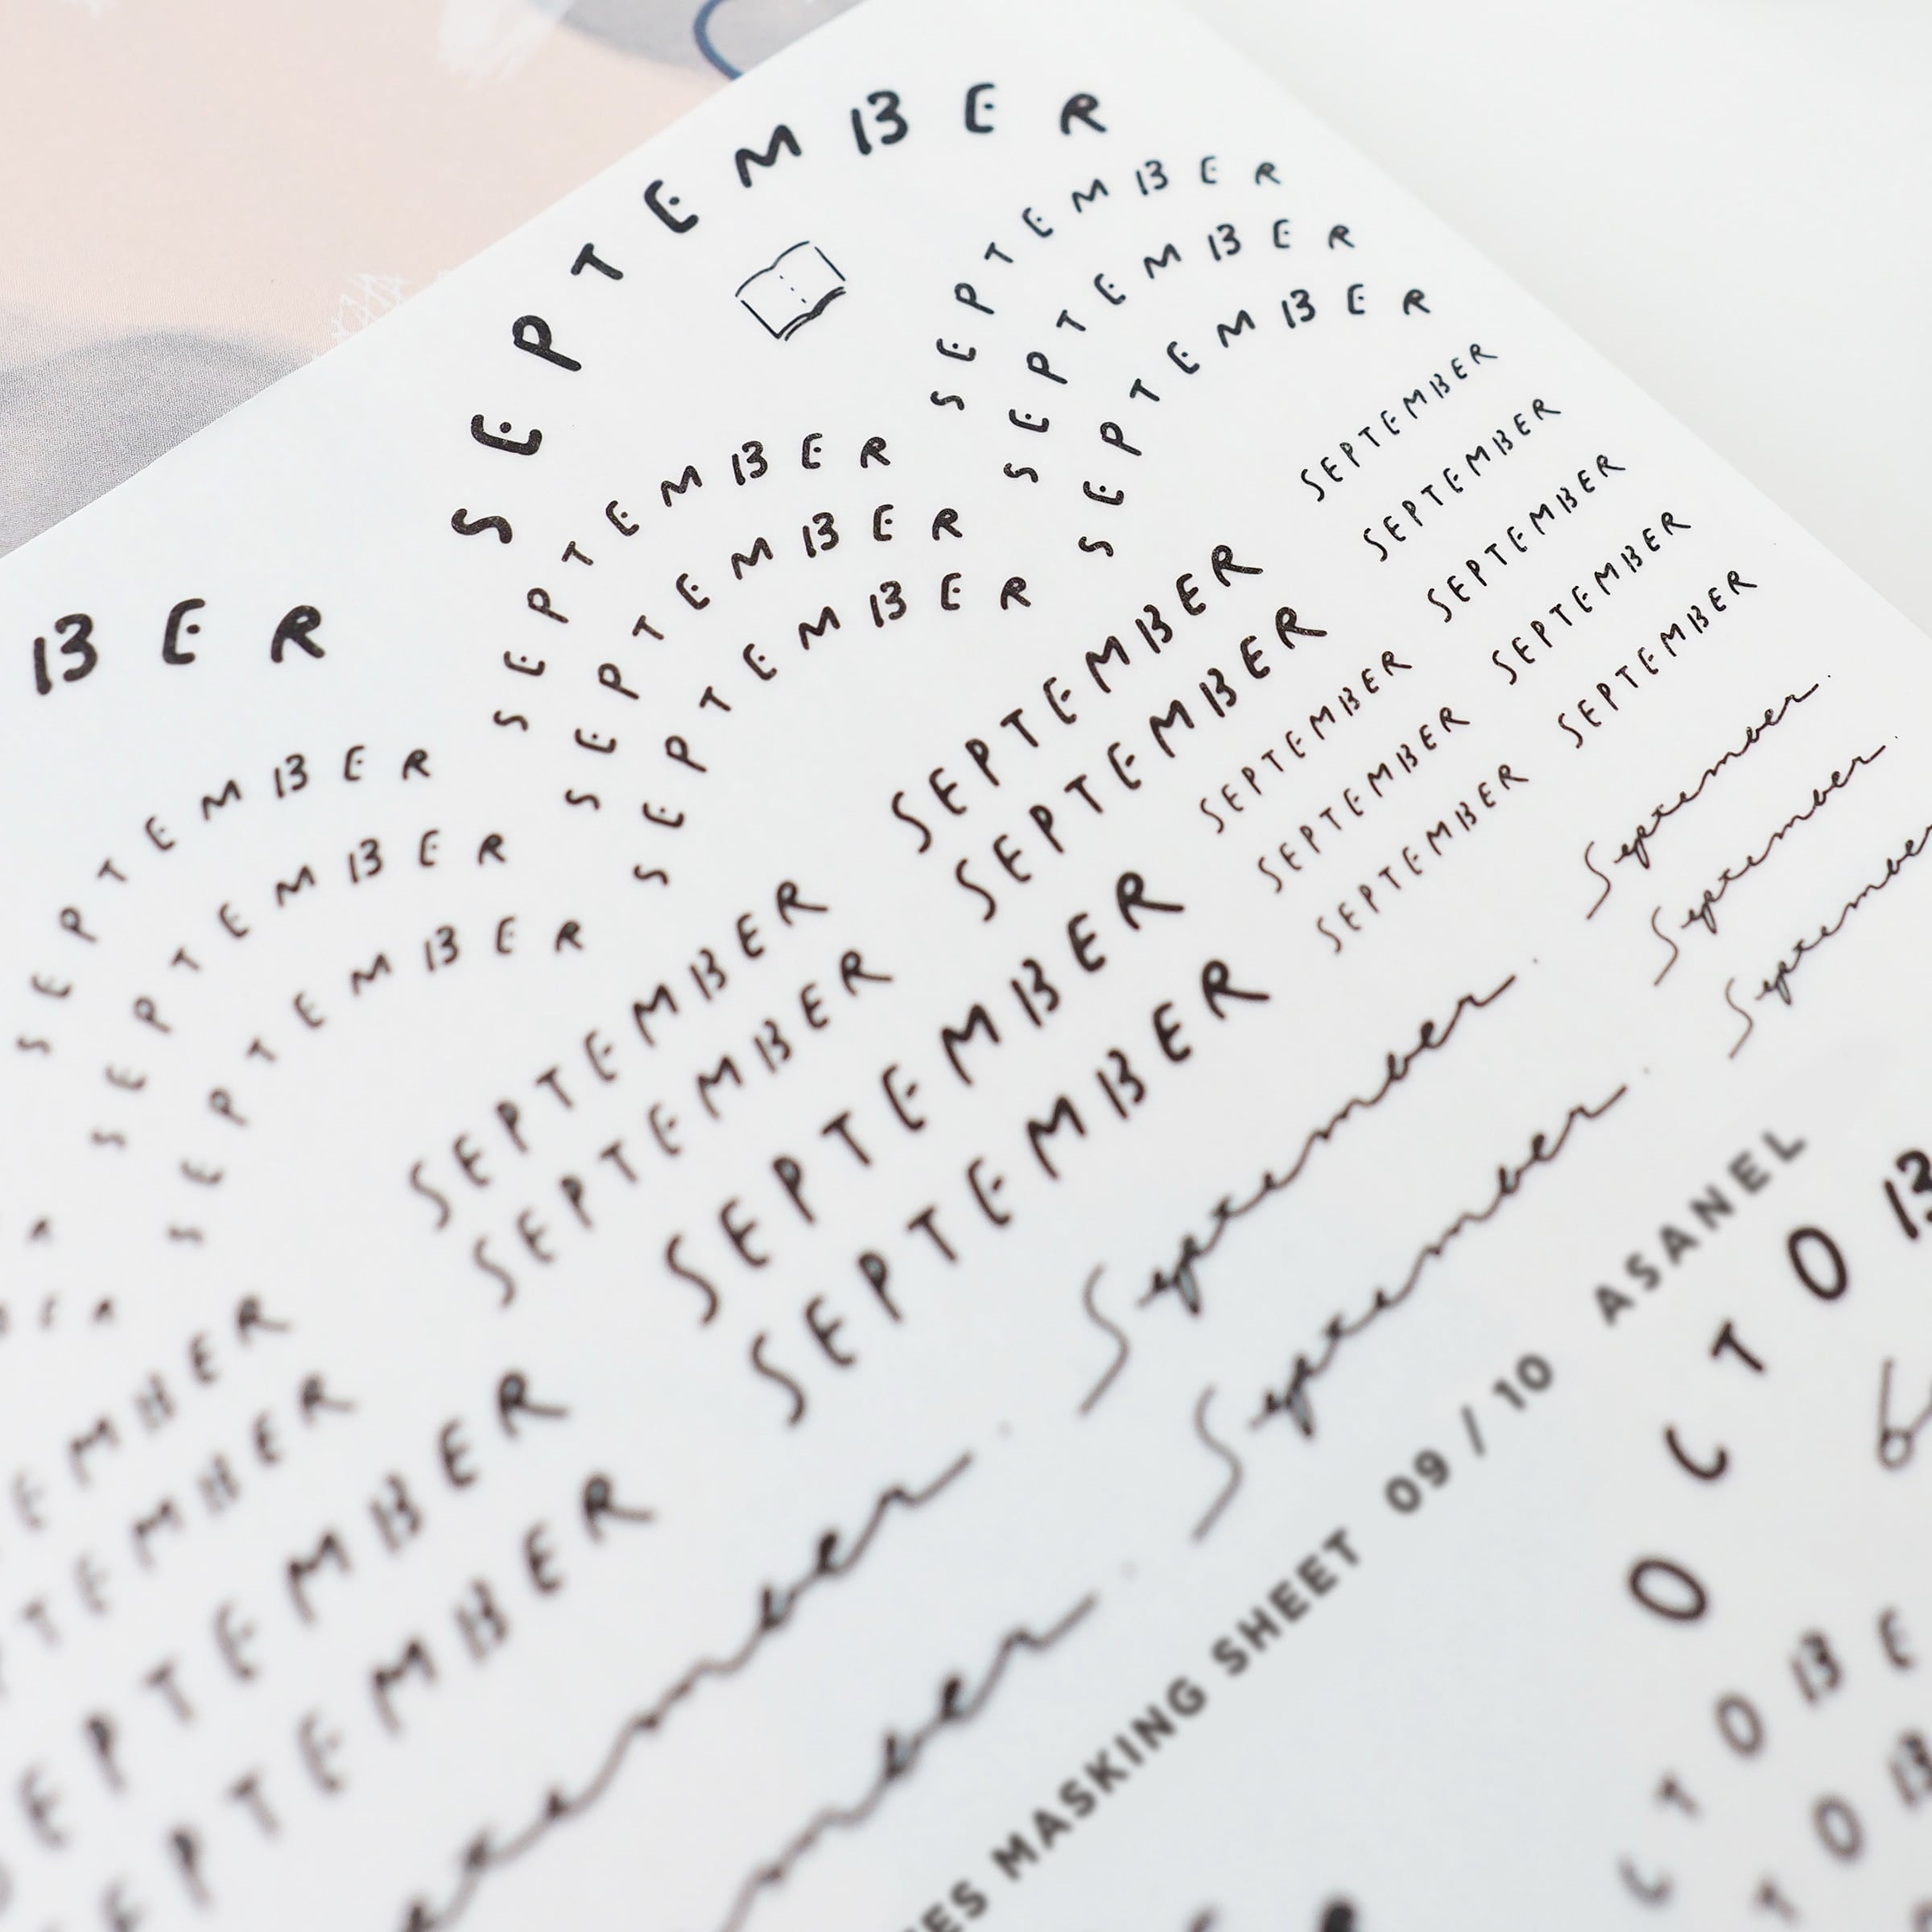 SEPTEMBER
SEPTEMBER
SEPTEMBER
SEPTEMBER
SEPTEMBER
SEPTEMBER
SEPTEMBER
BER
SEPTEMBER
SEPTEMBER
SEPTEMBER
SEPTEMBER
SEPTEMBER
SEPTEMBER
SEPTEMBER
SEPTEMBER
SEPTEMBER
SEPTEMBER
SEPTEMBER
SEPTEMBER
SEPTEMBER
SEPTEMBER
SEPTEMBER
SEPTEMBER
SEPTEMBER
SEPTEMBER
September.
September.
September
September.
September.
EMBER
TEMBER
EPTEMBER
SEPTEMBER
ember.
mber.
ES MASKING SHEET 09 / 10 ASANEL
OCTOB
CTOBE
TOB